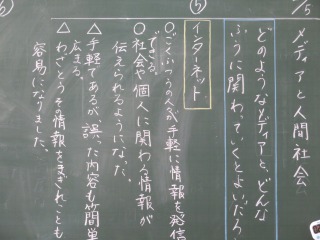 5/5
メディアと人間社会
どのようなメディアと、どんな
ふうに関わっていくとよいだろ
⑤
インターネット
○ごくふつうの人が手軽に情報を発信
できる。
○社会や個人に関わる情報が
伝えられるようになった。
△手軽であるが、誤った内容も簡単
広まる。
△わざとうそ情報をまぎれこむことも
容易になりました。
⑥